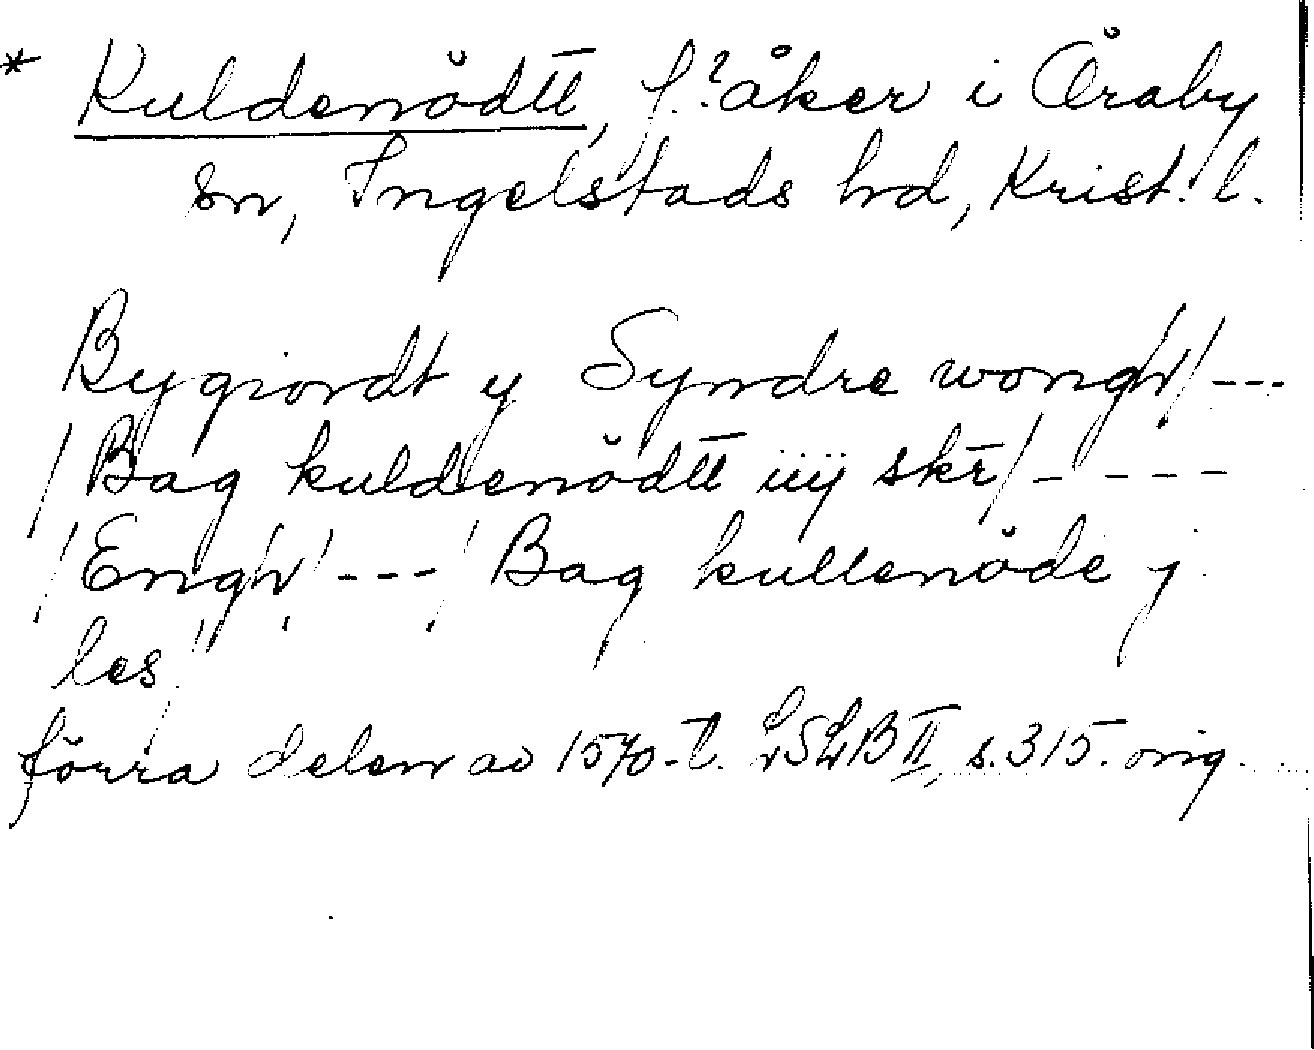 * Kuldenödtt, f.? åker i Öraby
sn, Ingelstads hd, Krist. l.
Bygiordt y Syndre wongh/ ---
/ Bag kuldenödtt iiij skr̄ / - - - -
/ Engh / --- / Bag kullenöde j
les /
förra delen av 1570-t. LSLB II, s. 315. orig.